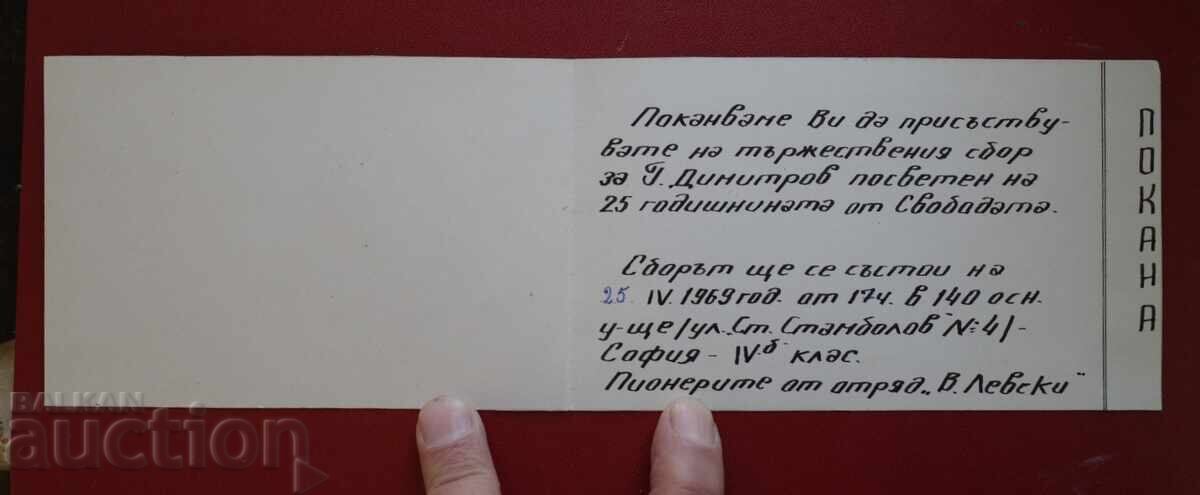 Поканваме Ви да присъству-
вате на тържествения сбор
за Г. Димитров посветен на
25 годишнината от Свободата.
Сборът ще се състои на
25. IV. 1969 год. от 17 ч. в 140 осн.
у-ще /ул. „Ст. Стамболов" №: 4/ -
София - IV.б клас.
Пионерите от отряд „В. Левски"
ПОКАНА
BALKAN
auction